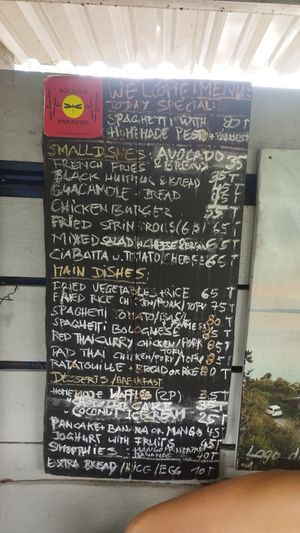 PARADISE
WELCOME! MENU:
TODAY SPECIAL:
SPAGHETTI WITH 80T
HOMEMADE PESTO + PARMESAN
SMALL DISHES: AVOCADO 35
FRENCH FRIES & BREAD
BLACK HUMMUS & BREAD 35T
GUACAMOLE + BREAD
CHICKEN BURGER 55T
FRIED SPRING ROLLS (6)
MIXED SALAD w CHEESE & BREAD 65T
CIABATTA w. TOMATO/CHEESE 65T
MAIN DISHES:
FRIED VEGETABLES + RICE 65T
FRIED RICE CHICKEN/PORK/TOFU 75T
SPAGHETTI TOMATO/BASIL
SPAGHETTI BOLOGNESE
RED THAI CURRY CHICKEN/PORK 85T
PAD THAI CHICKEN/PORK/TOFU
RATATOUILLE + BREAD OR RICE 80T
DESSERTS/BREAKFAST
HOMEMADE WAFFLES (2P) 35T
COCONUT ICECREAM 25T
PANCAKE BANANA OR MANGO 45T
JOGHURT WITH FRUITS 45T
SMOOTHIES: 40T
EXTRA BREAD/RICE/EGG 10T